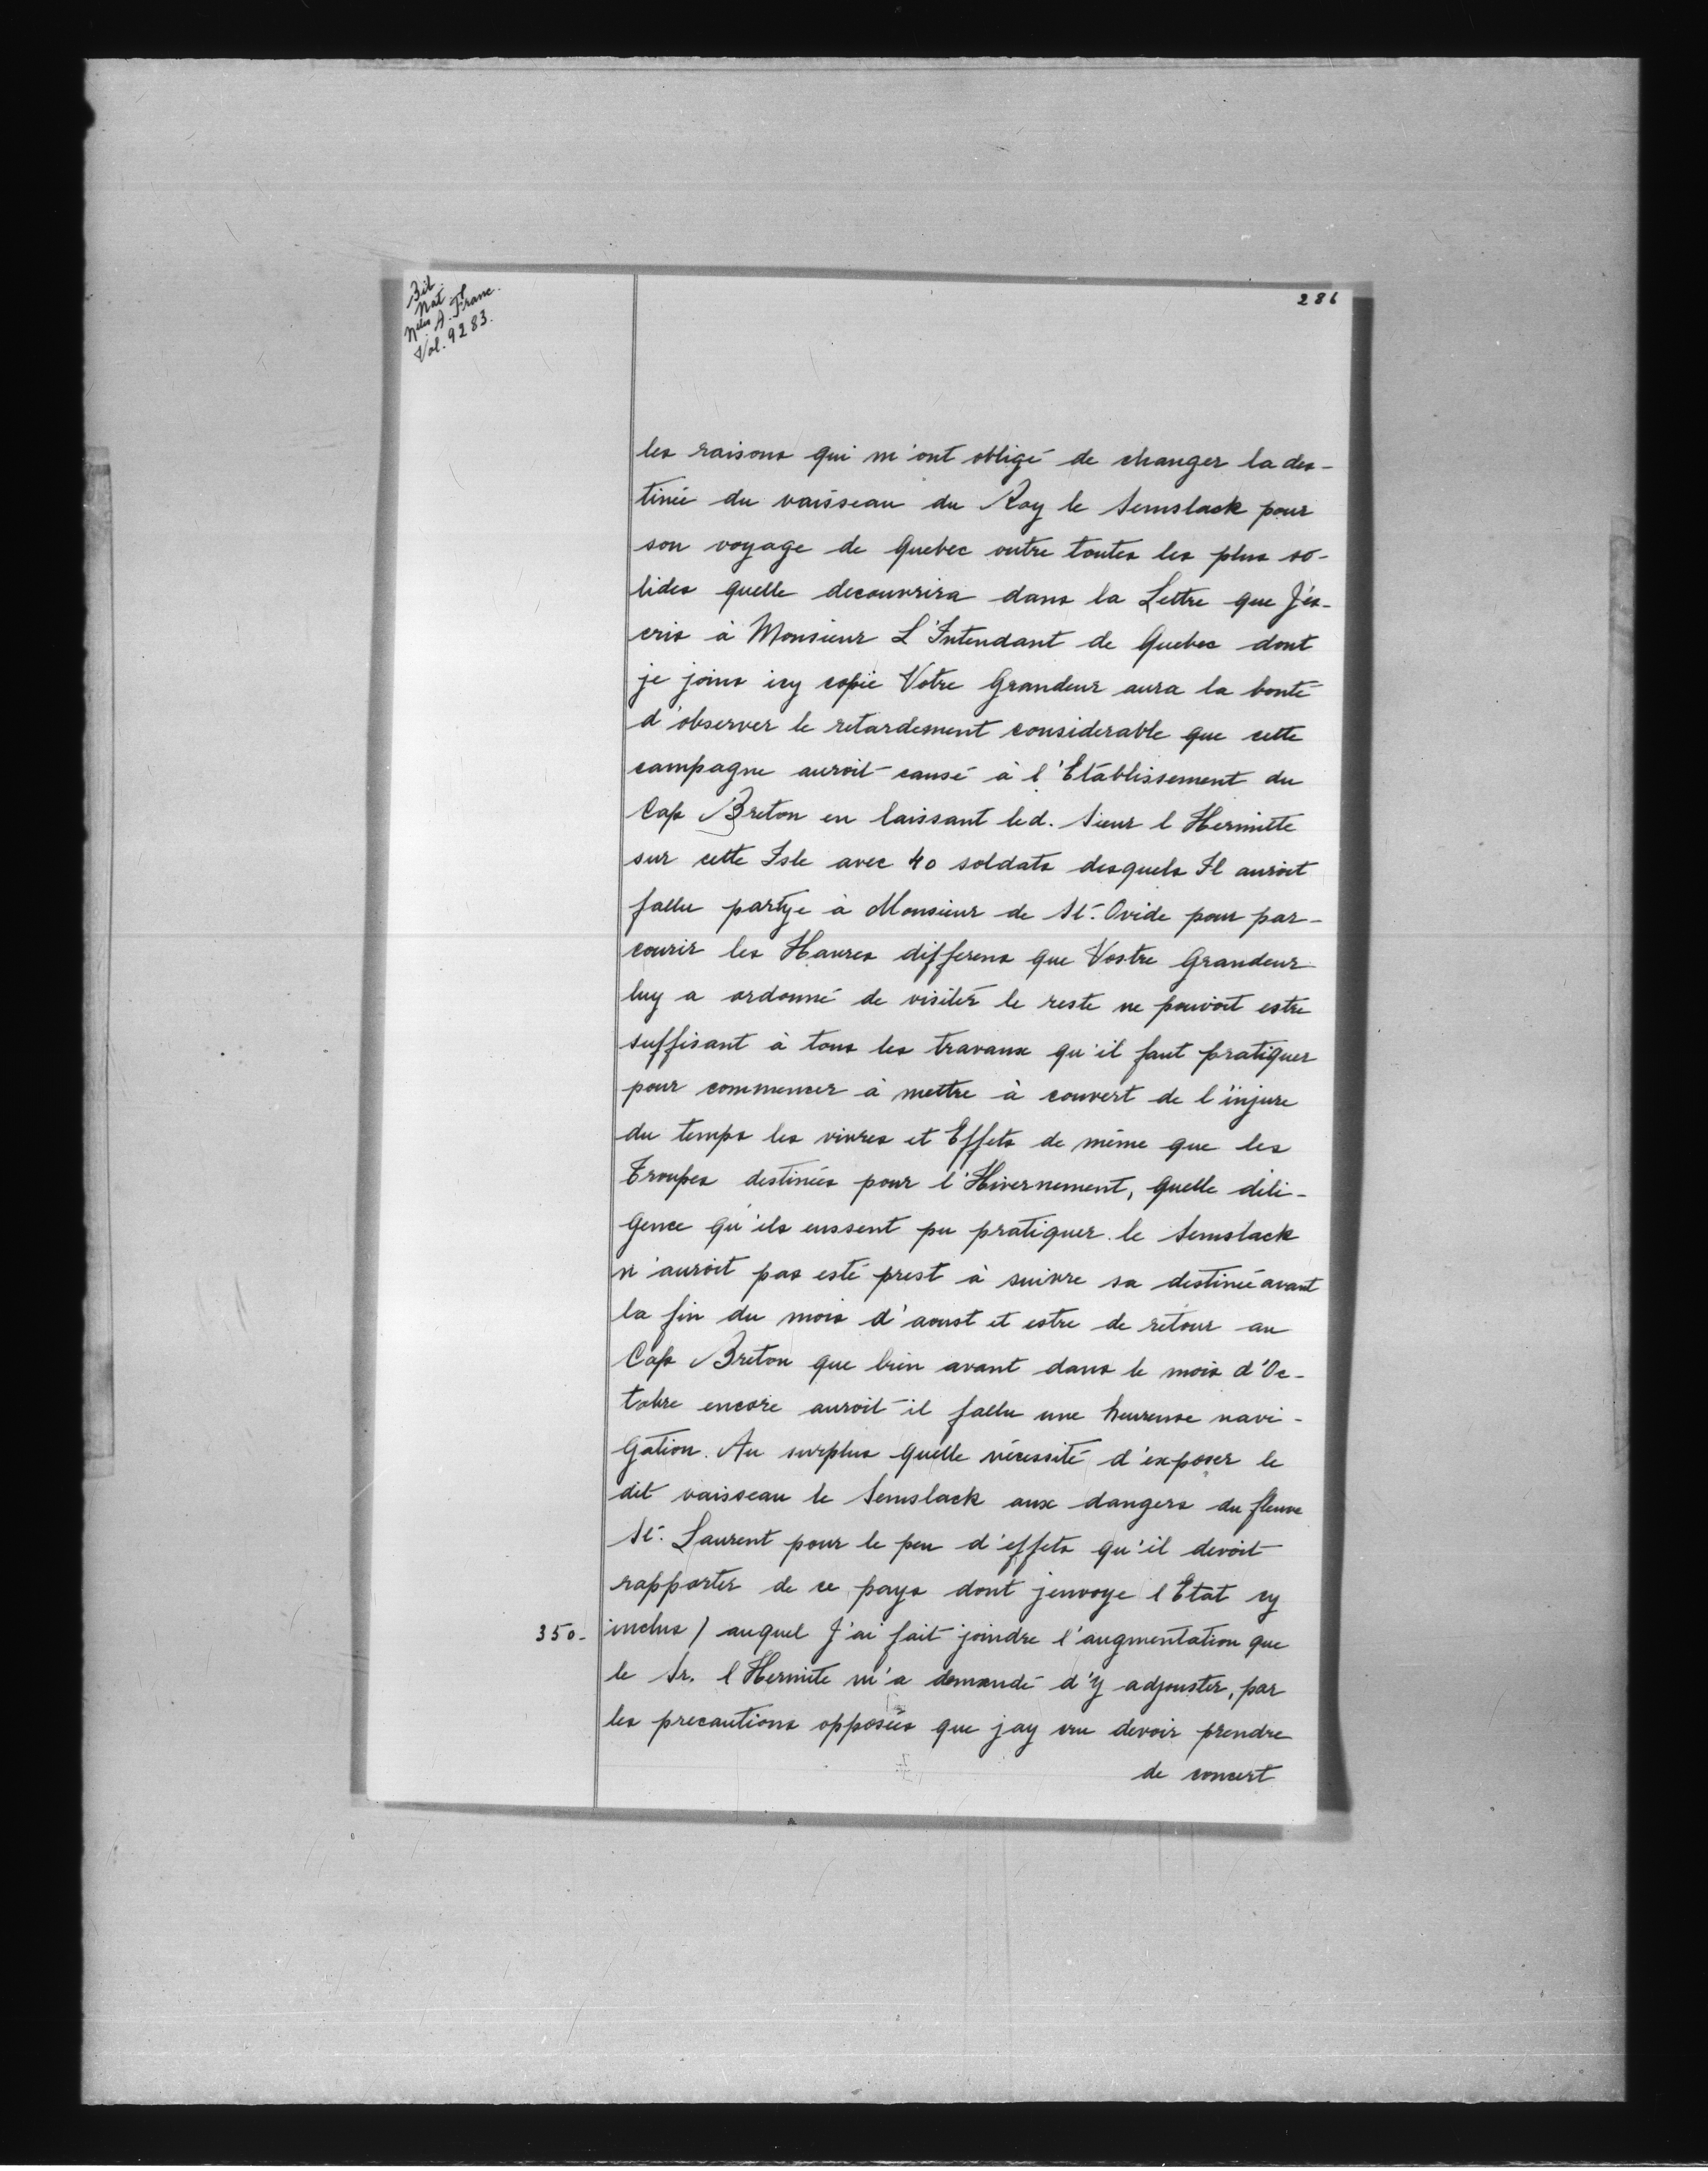 Bib
Nat
Nelles A. Franc.
Vol. 9283.
286
les raisons qui m'ont obligé de changer la des-
tinée du vaisseau du Roy le Semslack pour
son voyage de Quebec outre toutes les plus so-
lides quelle decouvrira dans la Lettre que J'és-
cris à Monsieur L'Intendant de Quebec dont
je joins icy copie Votre Grandeur aura la bonté
d'observer le retardement considerable que cette
campagne auroit causé à l'Etablissement du
Cap Breton en laissant led. Sieur l Hermitte
sur cette Isle avec 40 soldats desquels Il auroit
fallu partye à Monsieur de St. Ovide pour par-
courir les Havres differens que Vostre Grandeur
luy a ordonné de visiter le reste ne pouvoit estre
suffisant à tous les travaux qu'il faut pratiquer
pour commencer à mettre à couvert de l'injure
du temps les vivres et Effets de même que les
Troupes destinées pour l'Hivernement, quelle dili-
gence qu'ils eussent pu pratiquer. le Semslack
n'auroit pas esté prest à suivre sa destinée avant
la fin du mois d'aoust et estre de retour au
Cap Breton que bien avant dans le mois d'Oc-
tobre encore auroit-il fallu une heureuse navi-
gation. Au surplus quelle nécessité d'exposer le
dit vaisseau le Semslack aux dangers du fleuve
St. Laurent pour le peu d'effets qu'il devoit
rapporter de ce pays dont jenvoye l Etat cy
350- inclus) auquel J'ai fait joindre l'augmentation que
le Sr. l Hermite m'a demandé d'y adjouster, par
les precautions opposées que jay cru devoir prendre
de concert